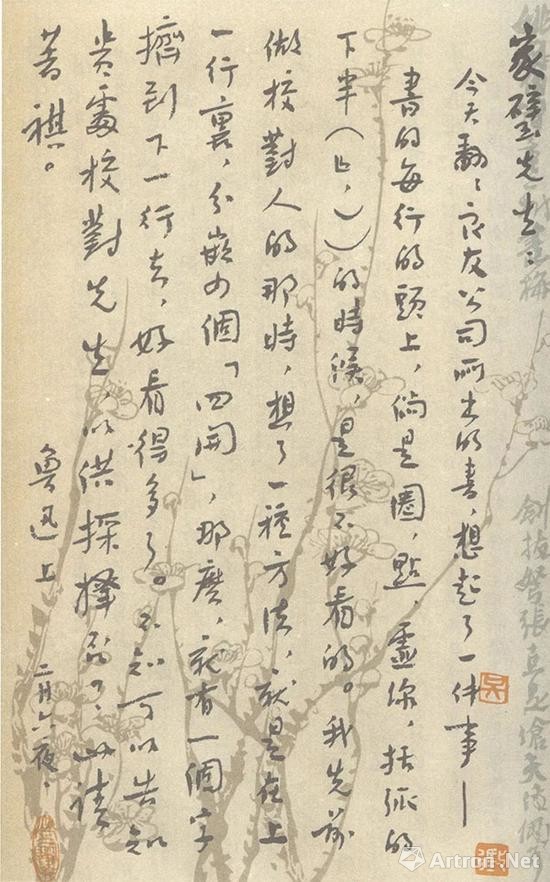 家璧先生：
今天翻〻良友公司所出的書，想起了一件事——
書的每行的頭上，倘是圈，點，虛線，括弧的
下半（﹂，））的時候，是很不好看的。我先前
做校對人的那時，想了一種方法，就是在上
一行裏，分嵌四個「四開」，那麼，就有一個字
擠到下一行去，好看得多了。不知可以告知
貴處校對先生，以供採擇否？此請
著祺。
魯迅上 二月六夜。
劍拔弩張
Artron.Net